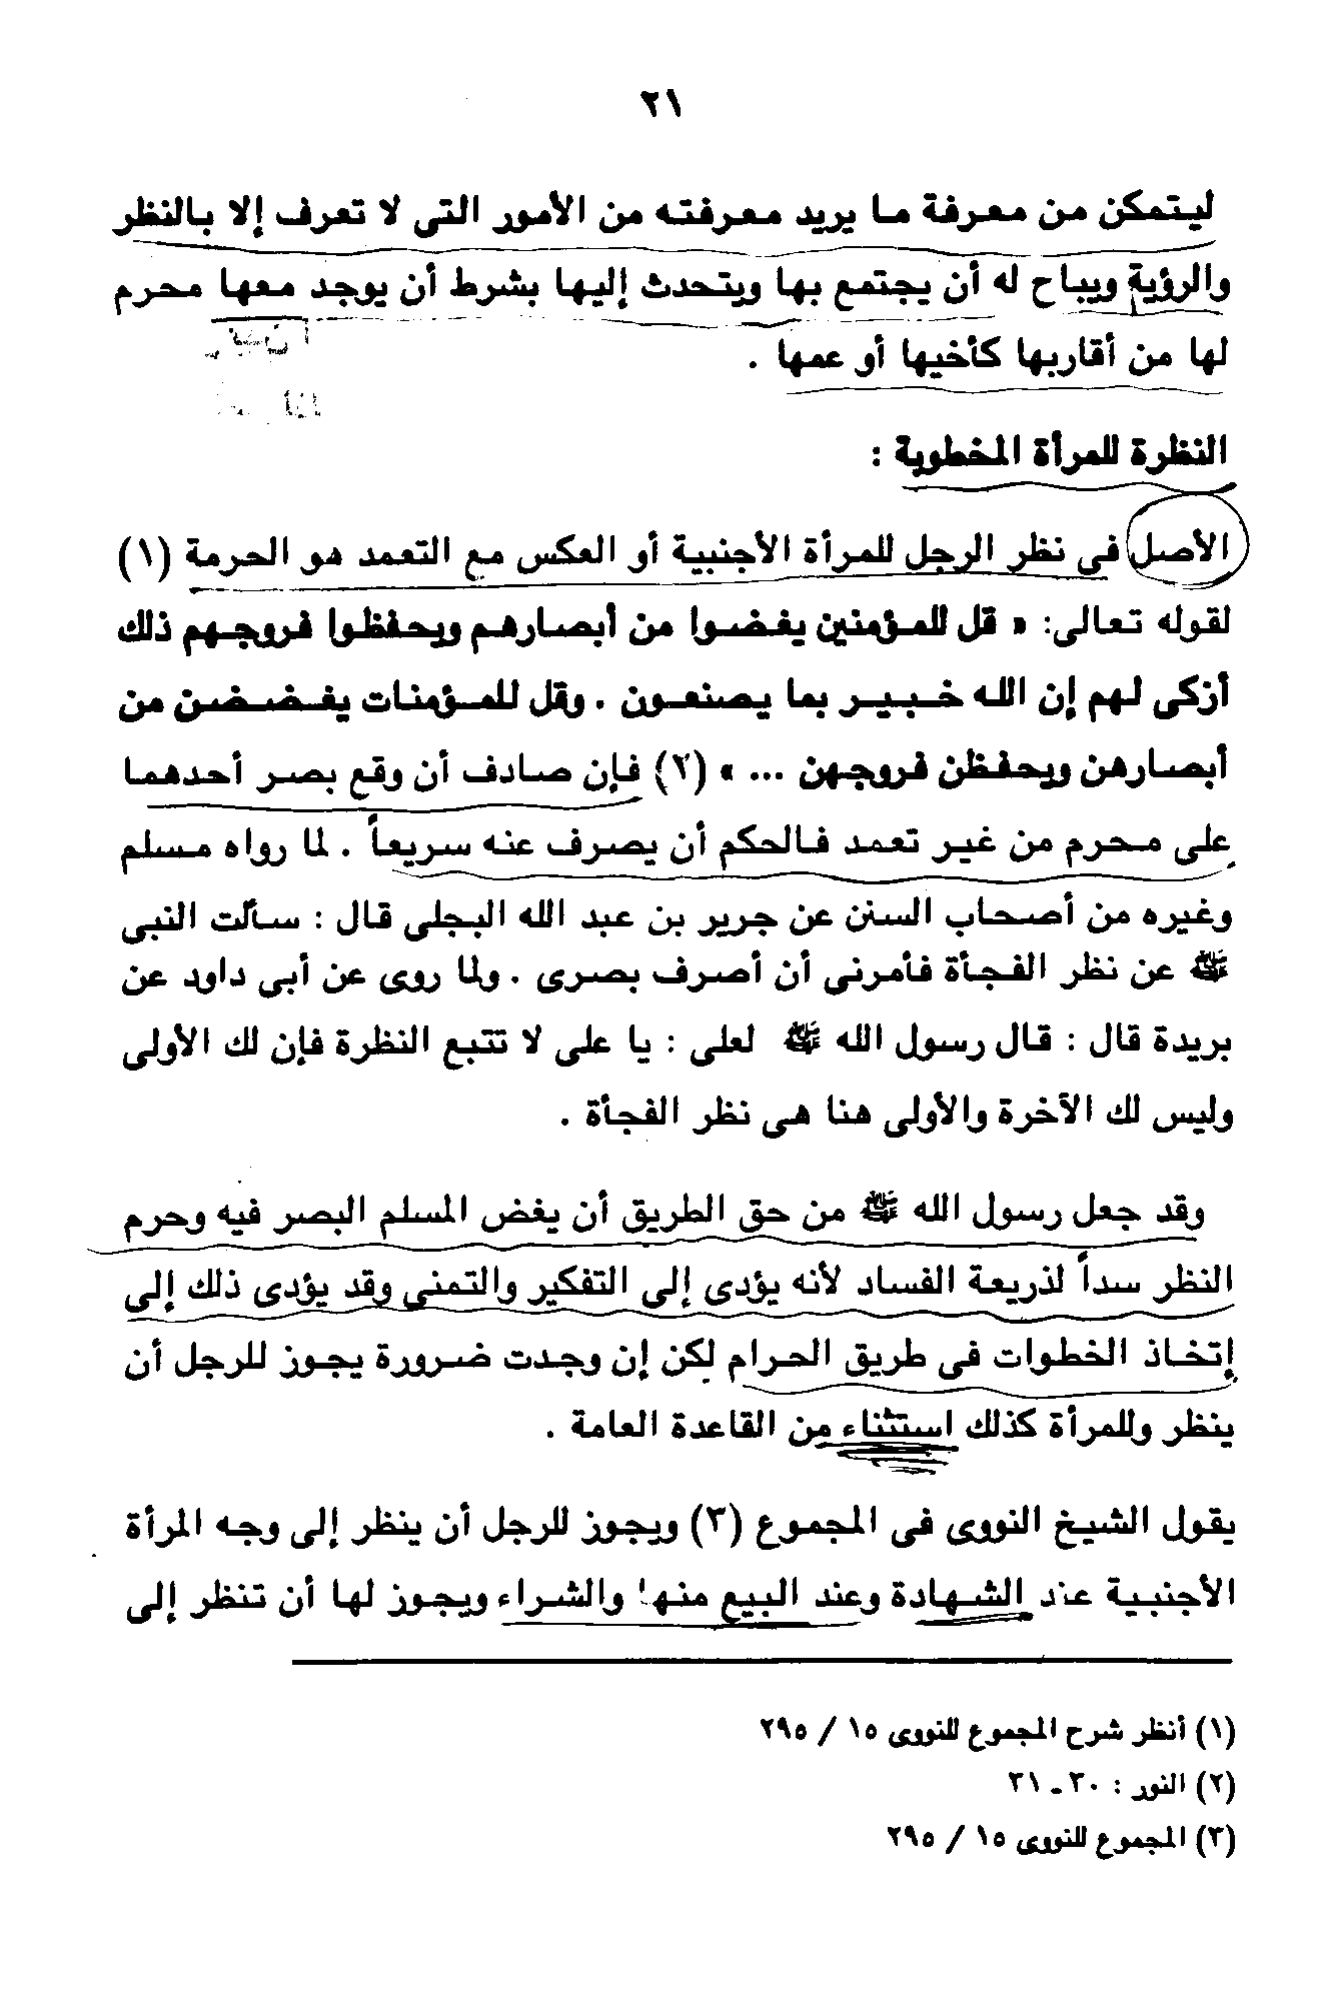 ٢١
ليتمكن من معرفة ما يريد معرفته من الأمور التى لا تعرف إلا بالنظر
والرؤية ويباح له أن يجتمع بها ويتحدث إليها بشرط أن يوجد معها محرم
لها من أقاربها كأخيها أو عمها .
النظرة للمرأة المخطوبة :
الأصل فى نظر الرجل للمرأة الأجنبية أو العكس مع التعمد هو الحرمة (١)
لقوله تعالى: « قل للمؤمنين يغضوا من أبصارهم ويحفظوا فروجهم ذلك
أزكى لهم إن الله خبير بما يصنعون . وقل للمؤمنات يغضضن من
أبصارهن ويحفظن فروجهن ... » (٢) فإن صادف أن وقع بصر أحدهما
على محرم من غير تعمد فالحكم أن يصرف عنه سريعاً . لما رواه مسلم
وغيره من أصحاب السنن عن جرير بن عبد الله البجلى قال : سألت النبى
ﷺ عن نظر الفجأة فأمرنى أن أصرف بصرى . ولما روى عن أبى داود عن
بريدة قال : قال رسول الله ﷺ لعلى : يا على لا تتبع النظرة فإن لك الأولى
وليس لك الآخرة والأولى هنا هى نظر الفجأة .
وقد جعل رسول الله ﷺ من حق الطريق أن يغض المسلم البصر فيه وحرم
النظر سداً لذريعة الفساد لأنه يؤدى إلى التفكير والتمنى وقد يؤدى ذلك إلى
إتخاذ الخطوات فى طريق الحرام لكن إن وجدت ضرورة يجوز للرجل أن
ينظر وللمرأة كذلك استثناء من القاعدة العامة .
يقول الشيخ النووى فى المجموع (٣) ويجوز للرجل أن ينظر إلى وجه المرأة
الأجنبية عند الشهادة وعند البيع منها والشراء ويجوز لها أن تنظر إلى
(١) أنظر شرح المجموع للنووى ١٥ / ٢٩٥
(٢) النور : ٣٠ ـ ٣١
(٣) المجموع للنووى ١٥ / ٢٩٥